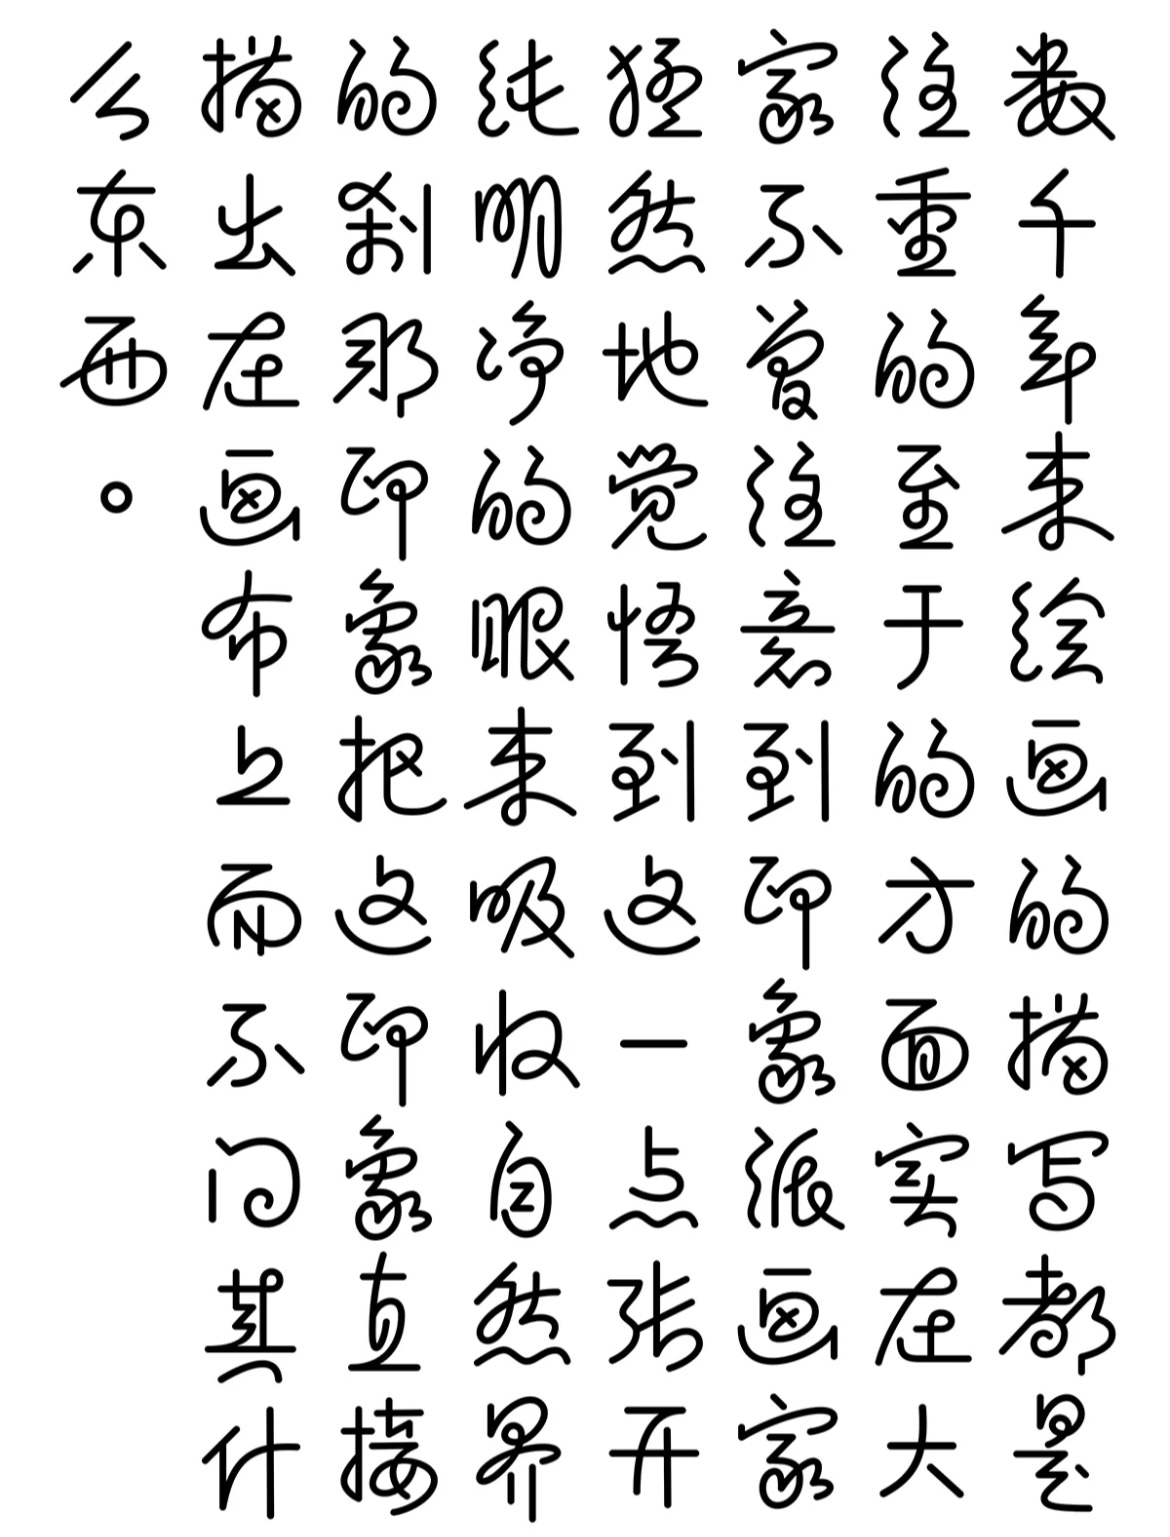 数千年来绘画的描写都是
注重的至于的方面实在大
家不曾注意到印象派画家
猛然地觉悟到这一点张开
纯明净的眼来吸收自然界
的刹那印象把这印象直接
描出在画布上而不问其什
么东西。